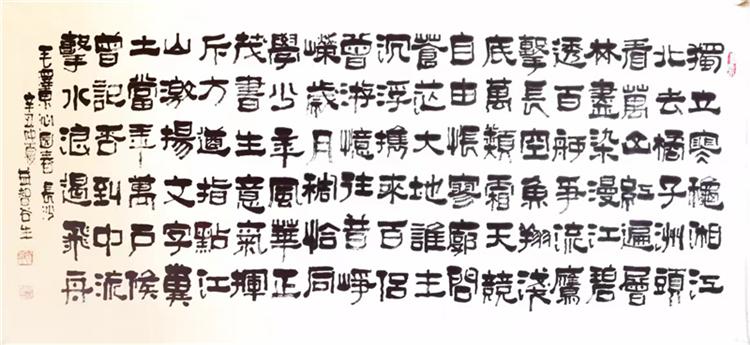 獨立寒穐湘江
北去橘子洲頭
看萬山紅遍層
林盡染漫江碧
透百舸爭流鷹
擊長空魚翔淺
底萬類霜天競
自由悵寥廓問
蒼茫大地誰主
沉浮携來百侶
曾游憶往昔崢
嶸歲月稠恰同
學少年風華正
茂書生意氣揮
斥方遒指點江
山激揚文字糞
土當年萬户侯
曾記否到中流
擊水浪遏飛舟
毛澤東沁園春長沙
辛丑仲夏